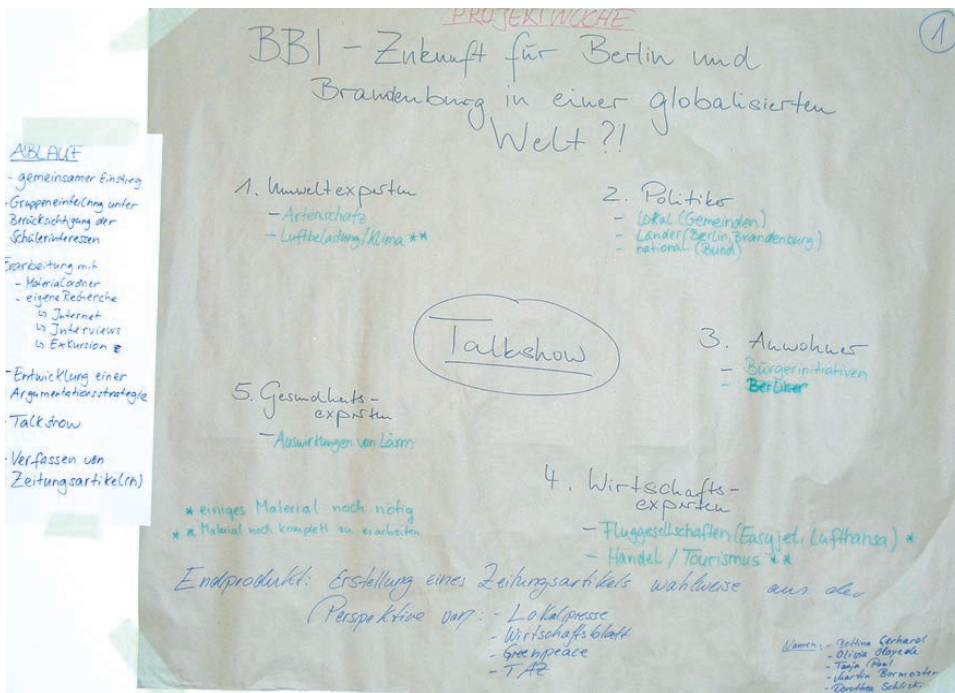 PROJEKTWOCHE
1
BBI - Zukunft für Berlin und
Brandenburg in einer globalisierten
Welt?!
ABLAUF
- gemeinsamer Einstieg
- Gruppeneinteilung unter
Berücksichtigung der
Schülerinteressen
Erarbeitung mit
- Materialordner
- eigene Recherche
↳ Internet
↳ Interviews
↳ Exkursion
- Entwicklung einer
Argumentationsstrategie
- Talkshow
- Verfassen von
Zeitungsartikel(n)
1. Umweltexperten
- Artenschutz
- Luftbelastung/Klima **
2. Politiker
- lokal (Gemeinden)
- Länder (Berlin, Brandenburg)
- national (Bund)
Talkshow
3. Anwohner
- Bürgerinitiativen
- Berliner
5. Gesundheits-
experten
- Auswirkungen von Lärm
4. Wirtschafts-
experten
- Fluggesellschaften (Easyjet, Lufthansa) *
- Handel / Tourismus **
* einiges Material noch nötig
** Material noch komplett zu erarbeiten
Endprodukt: Erstellung eines Zeitungsartikels wahlweise aus der
Perspektive von: - Lokalpresse
- Wirtschaftsblatt
- Greenpeace
- TAZ
Namen: - Bettina Gerhard
- Olivia
- Tanja Paul
- Martin Bormeister
- Dorothea